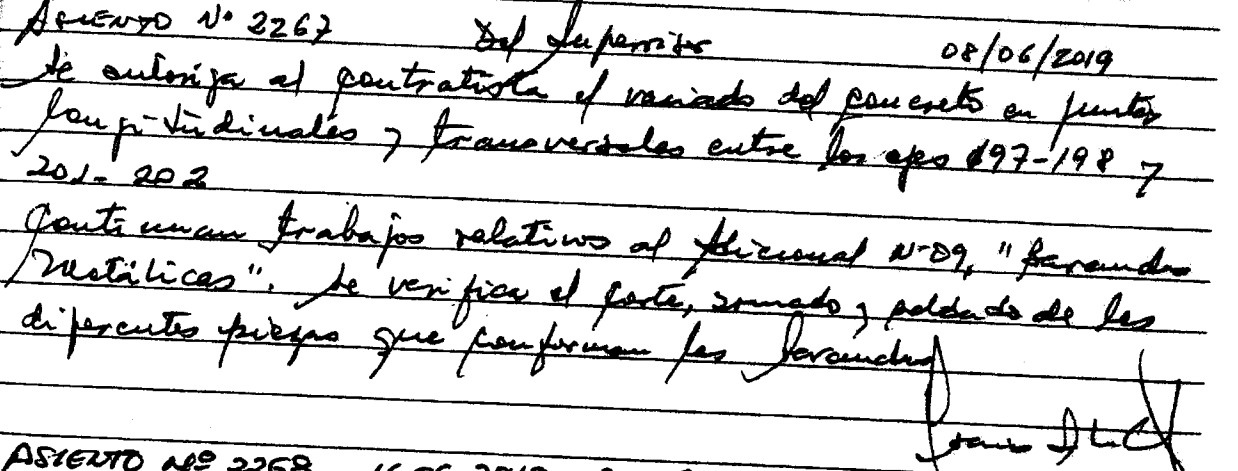 ASIENTO Nº 2267 Del Supervisor 08/06/2019
Se autoriza al contratista el vaciado del concreto en juntas
longitudinales y transversales entre los ejes 197-198 y
201-202
Continuan trabajos relativos al Adicional Nº09, "Barandas
Metálicas". Se verifica el corte, armado y soldado de las
diferentes piezas que conforman las barandas
ASIENTO Nº 2268